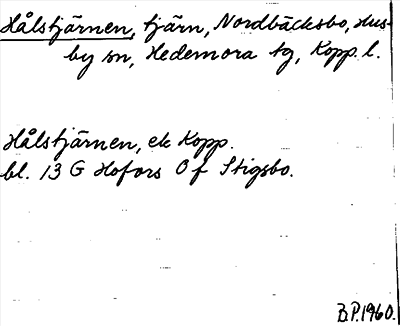 Hålstjärnen, tjärn, Nordbäcksbo, Hus-
by sn, Hedemora tg, Kopp. l.
Hålstjärnen, ek Kopp.
bl. 13 G Hofors O f Stigsbo.
B.P. 1960.